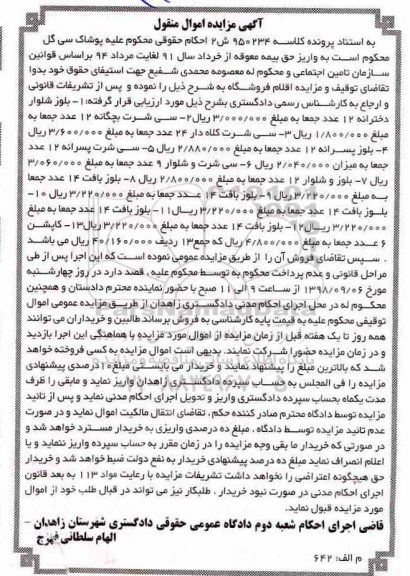 آگهی مزایده اموال منقول
به استناد پرونده کلاسه ۹۵۰۲۳۴ ش۲ احکام حقوقی محکوم علیه پوشاک سی گل
محکوم است به واریز حق بیمه معوقه از خرداد سال ۹۱ لغایت مرداد ۹۴ براساس قوانین
سازمان تامین اجتماعی و محکوم له معصومه محمدی شفیع جهت استیفای حقوق خود بدوا
تقاضای توقیف و مزایده اقلام فروشگاه به شرح ذیل را نموده و پس از تشریفات قانونی
و ارجاع به کارشناس رسمی دادگستری بشرح ذیل مورد ارزیابی قرار گرفته:۱- بلوز شلوار
دخترانه ۱۲ عدد جمعا به مبلغ ۳/۰۰۰/۰۰۰ ریال۲- سی شرت بچگانه ۱۲ عدد جمعا به
مبلغ ۱/۸۰۰/۰۰۰ ریال ۳- سی شرت کلاه دار ۲۴ عدد جمعا به مبلغ ۳/۶۰۰/۰۰۰ ریال
۴- بلوز پسرانه ۱۲ عدد جمعا به مبلغ ۲/۸۸۰/۰۰۰ ریال ۵- سی شرت پسرانه ۱۲ عدد
جمعا به میزان ۲/۰۴۰/۰۰۰ ریال ۶- سی شرت و شلوار ۹ عدد جمعا به مبلغ ۳/۰۶۰/۰۰۰
ریال ۷- بلوز و شلوار ۱۲ عدد جمعا به مبلغ ۲/۸۰۰/۰۰۰ ریال ۸- بلوز بافت ۱۴ عدد جمعا
به مبلغ ۳/۲۲۰/۰۰۰ ریال ۹- بلوز بافت ۱۴ عدد جمعا به مبلغ ۳/۲۲۰/۰۰۰ ریال ۱۰-
بلوز بافت ۱۴ عدد جمعا به مبلغ ۳/۲۲۰/۰۰۰ ریال۱۱- بلوز بافت ۱۴ عدد جمعا به مبلغ
۳/۲۲۰/۰۰۰ ریال۱۲- بلوز بافت ۱۴ عدد جمعا به مبلغ ۳/۲۲۰/۰۰۰ ریال۱۳- کاپشن
۶ عدد جمعا به مبلغ ۴/۸۰۰/۰۰۰ ریال که جمع۱۳ ردیف ۴۰/۱۶۰/۰۰۰ ریال می باشد
. سپس تقاضای فروش آن را از طریق مزایده عمومی نموده است که این اجرا پس از طی
مراحل قانونی و عدم پرداخت محکوم به توسط محکوم علیه، قصد دارد در روز چهارشنبه
مورخ ۱۳۹۸/۰۹/۰۶ از ساعت ۹ الی ۱۱ صبح با حضور نماینده محترم دادستان و همچنین
محکوم له در محل اجرای احکام مدنی دادگستری زاهدان از طریق مزایده عمومی اموال
توقیفی محکوم علیه به قیمت پایه کارشناسی به فروش برساند طالبین و خریداران می توانند
همه روز تا یک هفته قبل از زمان مزایده از اموال مورد مزایده با هماهنگی این اجرا بازدید
و در زمان مزایده حضورا شرکت نمایند. بدیهی است اموال مزایده به کسی فروخته خواهد
شد که بالاترین مبلغ را پیشنهاد نمایند و خریدار می بایستی مبلغ۱۰درصدی پیشنهادی
مزایده را فی المجلس به حساب سپرده دادگستری زاهدان واریز نماید و مابقی را ظرف
مدت یکماه بحساب سپرده دادگستری واریز و تحویل اجرای احکام مدنی نماید و پس از تائید
مزایده توسط دادگاه محترم صادر کننده حکم، تقاضای انتقال مالکیت اموال نماید و در صورت
عدم تائید مزایده توسط دادگاه، مبلغ ده درصدی واریزی به خریدار مسترد خواهد شد و
در صورتی که خریدار ما بقی وجه مزایده را در زمان مقرر به حساب سپرده واریز ننماید و یا
اعلام انصراف نماید مبلغ ده درصد پیشنهادی خریدار به نفع دولت ضبط خواهد شد و خریدار
حق هیچگونه اعتراضی را نخواهد داشت تشریفات مزایده با رعایت مواد ۱۱۳ به بعد قانون
اجرای احکام مدنی در صورت نبود خریدار، طلبکار نیز می تواند در قبال طلب خود از اموال
مورد مزایده قبول نماید.
قاضی اجرای احکام شعبه دوم دادگاه عمومی حقوقی دادگستری شهرستان زاهدان –
الهام سلطانی فهرج
م الف: ۶۴۲